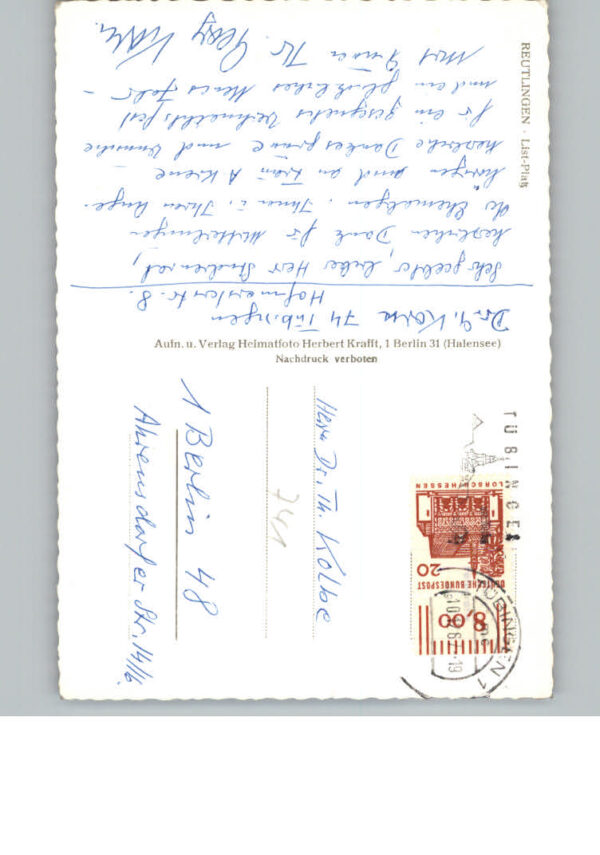 REUTLINGEN · List-Platz
Dr. G. Kolb 74 Tübingen
Hofmeisterstr. 8.
Sehr geehrter, lieber Herr Studienrat,
herzlichen Dank für Mitteilungen
der Ehemaligen. Ihnen u. Ihren Ange-
hörigen und an Frau A
herzliche Dankesgrüsse und Wünsche
für ein gesegnetes Weihnachtsfest
und ein glückliches Neues Jahr -
Mit Ihr Georg
Aufn. u. Verlag Heimatfoto Herbert Krafft, 1 Berlin 31 (Halensee)
Nachdruck verboten
TÜBINGEN
LORSCH/HESSEN
20
DEUTSCHE BUNDESPOST
8,00
TÜBINGEN 1
Herrn Dr. Th. Kolbe
1 Berlin 48
Ahrensdorfer Str. 14/16